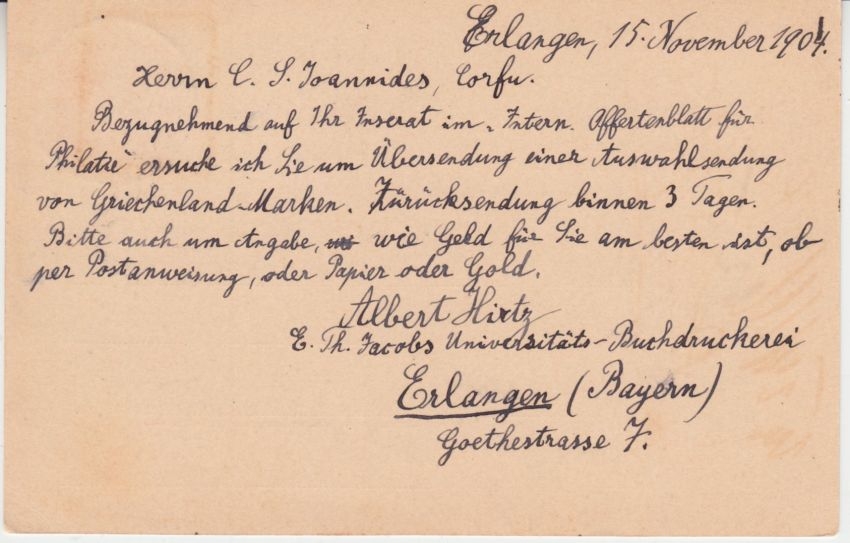 Erlangen, 15. November 1904.
Herrn C. S. Ioannides, Corfu.
Bezugnehmend auf Ihr Inserat im „Intern. Offertenblatt für
Philatie" ersuche ich Sie um Übersendung einer Auswahlsendung
von Griechenland-Marken. Zürücksendung binnen 3 Tagen.
Bitte auch um Angabe, wie Geld für Sie am besten ist, ob
per Postanweisung, oder Papier oder Gold.
Albert Hirtz
E. Th. Jacobs Universitäts-Buchdruckerei
Erlangen (Bayern)
Goethestrasse 7.